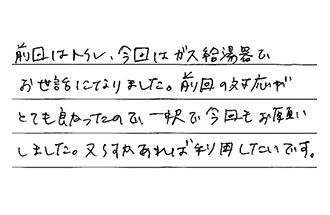 前回はトイレ、今回はガス給湯器で
お世話になりました。前回の対応が
とても良かったので、一択で今回もお願い
しました。又何かあれば利用したいです。